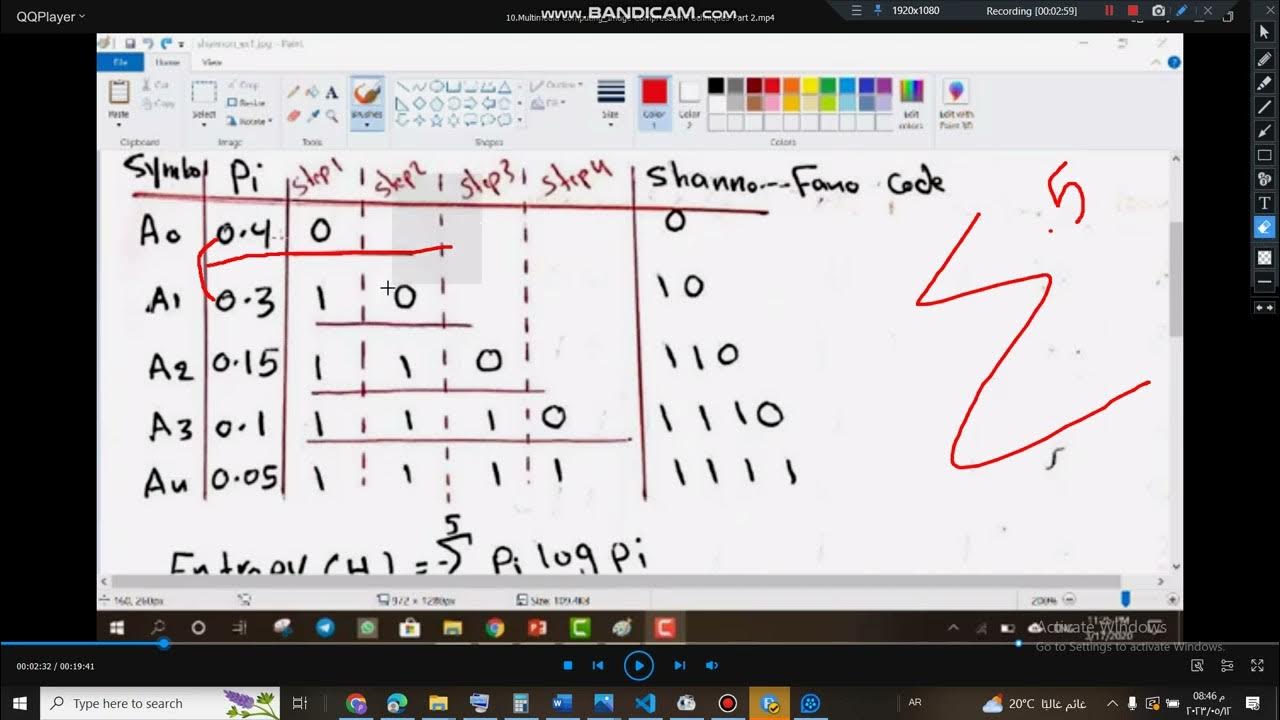 QQPlayer
www.BANDICAM.com
1920x1080
Recording [00:02:59]
10.Multimedia Computing_Image Compression Techniques Part 2.mp4
shannon_ex1.jpg - Paint
File Home View
Paste
Cut
Copy
Select
Crop
Resize
Rotate
Brushes
Outline
Fill
Size
Color 1
Color 2
Edit colors
Edit with Paint 3D
Clipboard Image Tools Shapes Colors
Symbol Pi step1 step2 step3 step4 Shanno--Fano Code
A0 0.4 0 0
A1 0.3 1 0 1 0
A2 0.15 1 1 0 1 1 0
A3 0.1 1 1 1 0 1 1 1 0
A4 0.05 1 1 1 1 1 1 1 1
.5
5
Entropy (H) = -Σ Pi log Pi
160, 260px
972 × 1280px
Size: 109.4KB
200%
3/17/2020
Activate Windows
Go to Settings to activate Windows.
00:02:32 / 00:19:41
Type here to search
AR
20°C غائم غالبًا
08:46 م
٢٠٢٣/٠٥/١٢